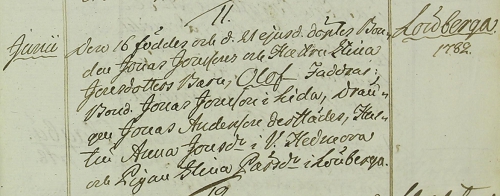 11.
Junii
Den 16 föddes och d. 21 ejusd. döptes Bon-
den Jonas Jonssons och Hustru Lina
Jonsdotters Barn, Olof. Faddrar:
Bond. Jonas Jonsson i Lida, Drän-
gen Jonas Anderson derstädes, Hus-
tru Anna Jonsdr i V.
och Pigan Elina Larsdr i Lönberga.
Lönberga.
1782.